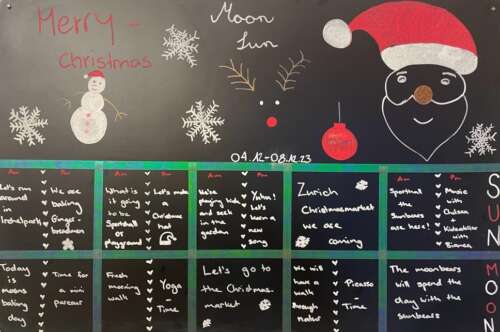 Merry -
Christmas
Moon
Sun
04.12-08.12.23
Am
Pm
Let's run
around
in
Irchelpark
We are
baking
Ginger-
breadmen
Am
Pm
What is
it going
to be
Sporthall
or
playground
Let's make
a
Christmas
hat
Am
Pm
We're
playing
hide and
seek in
the
garden
Yahu!
Let's
learn a
new
song
Zurich
Christmasmarket
we are
coming
Am
Pm
Sporthall
the
Sunbears
are here!
Music
with
Chelsea
+
Kidsatelier
with
Bianca
SUN
Today
is
moons
baking
day
Time for
a mini
parcour
Fresh
morning
walk
Yoga
Time
Let's go to
the Christmas
market
we will
have a
walk
through
natur
Picasso
-
Time
The moonbears
will spend the
day with the
sunbears
MOON